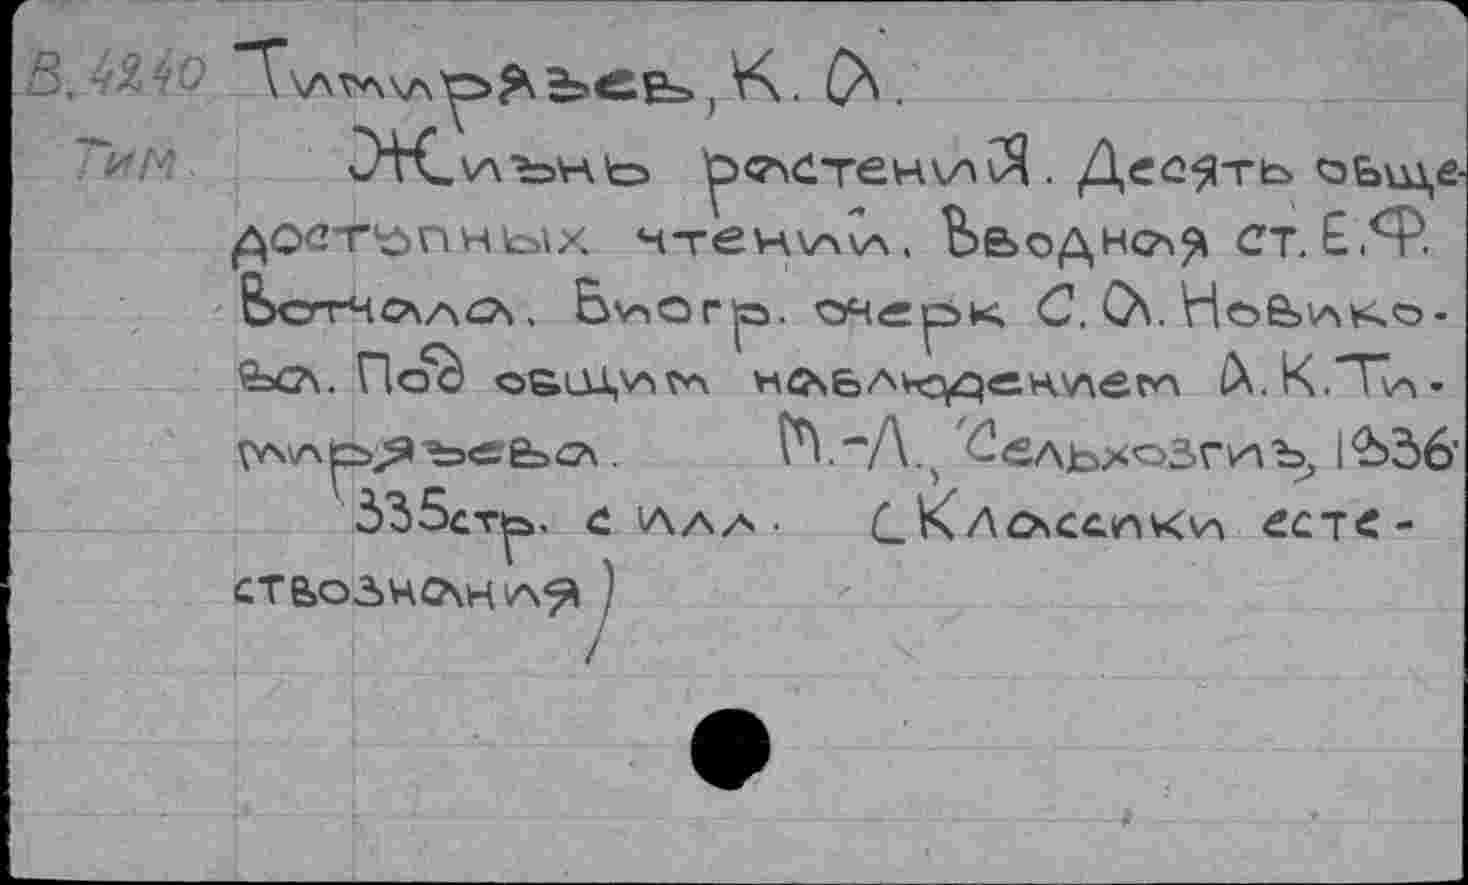 В.4240 Тимирязев, К. А.
Тим. Жизнь растений. Десять обще-
доступных чтений. Вводная ст. Е.Ф.
Вотчала. Биогр. очерк С.А. Новико-
ва. Под общим наблюдением А.К. Ти-
мирязева. М.-Л., Сельхозгиз, 1936
335стр. с илл. (Классики есте-
ствознания)